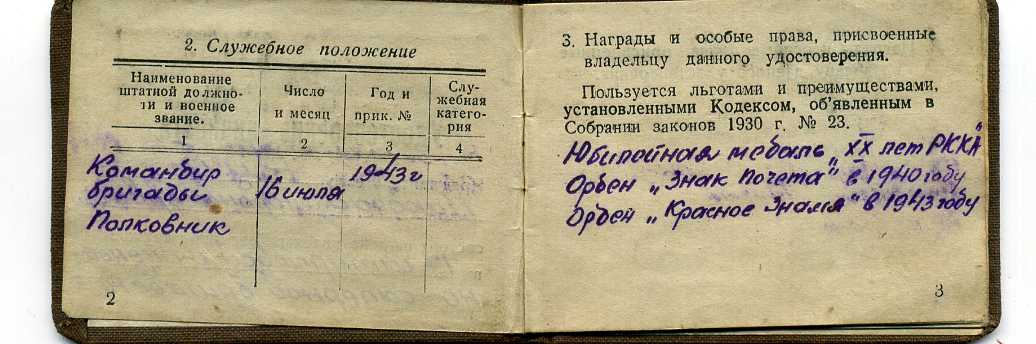 2. Служебное положение
Наименование
штатной должно-
ти и военное
звание.
Число
и месяц
Год и
прик. №
Слу-
жебная
катего-
рия
1
2
3
4
Командир
бригады
16 июля
1943 г
Полковник
2
3. Награды и особые права, присвоенные
владельцу данного удостоверения.
Пользуется льготами и преимуществами,
установленными Кодексом, об'явленным в
Собрании законов 1930 г. № 23.
Юбилейная медаль „XX лет РККА"
Орден „Знак почета" в 1940 году
Орден „Красное Знамя" в 1943 году
3